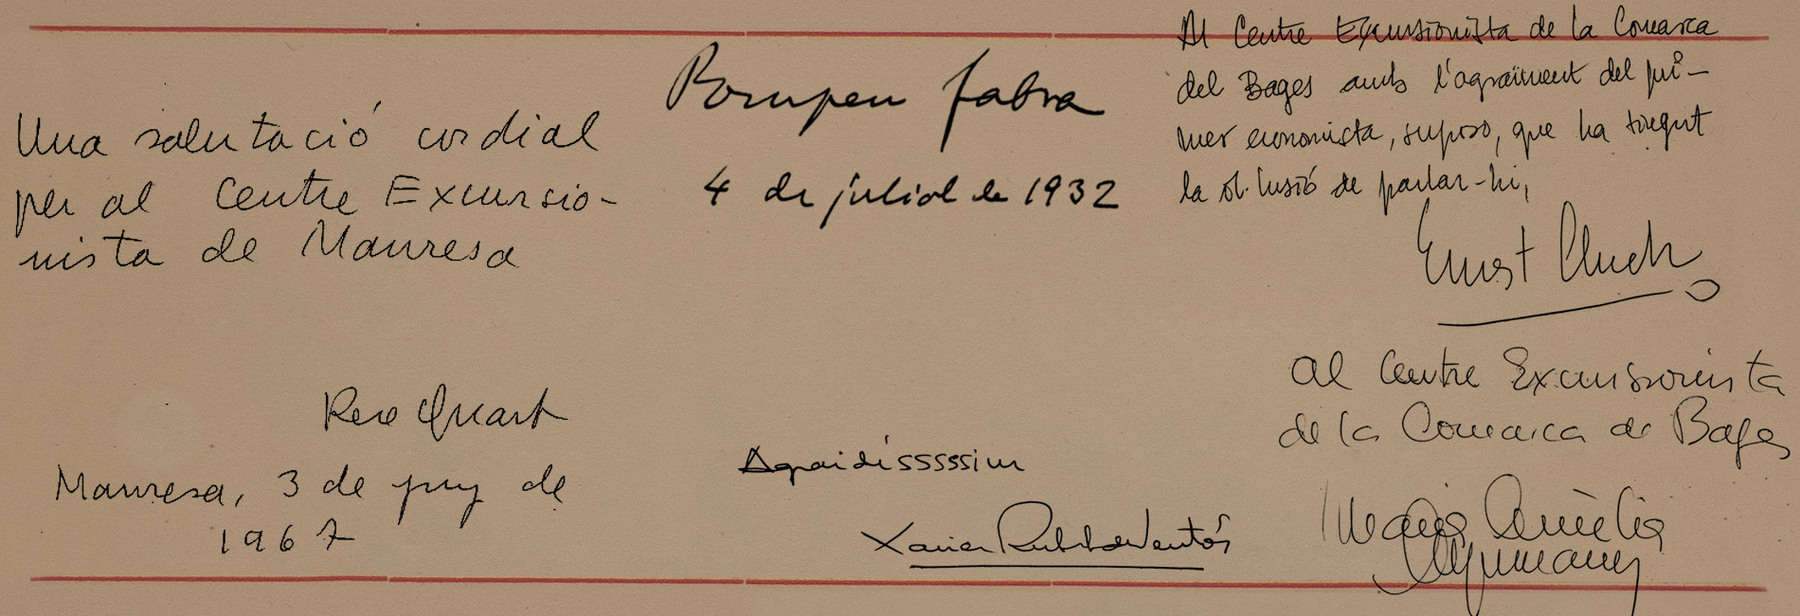 Una salutació cordial
per al Centre Excursio-
nista de Manresa
Pere Quart
Manresa, 3 de juny de
1967
Pompeu Fabra
4 de juliol de 1932
Agraidísssssim
Xavier Rubert de Ventós
Al Centre Excursionista de la Comarca
del Bages amb l'agraïment del pri-
mer economista, suposo, que ha tingut
la ol·lusió de parlar-hi,
Ernest Lluch
Al Centre Excursionista
de la Comarca de Bages
Maria Aurèlia
Capmany